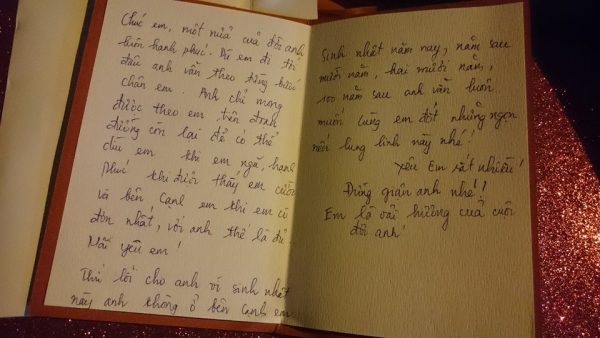 Chúc em, một nửa của đời anh
luôn hạnh phúc. Dù em đi tới
đâu anh vẫn theo từng bước
chân em. Anh chỉ mong
được theo em trên đoạn
đường còn lại để có thể
dìu em khi em ngã, hạnh
phúc khi được thấy em cười
và bên cạnh em khi em cô
đơn nhất, với anh thế là đủ
Mãi yêu em!
Tha lỗi cho anh vì sinh nhật
này anh không ở bên cạnh em
Sinh nhật năm nay, năm sau
mười năm, hai mươi năm,
100 năm sau anh vẫn luôn
muốn cùng em đốt những ngọn
nến lung linh này nhé!
Yêu Em rất nhiều!
Đừng giận anh nhé!!
Em là cả hướng của cuộc
đời anh!